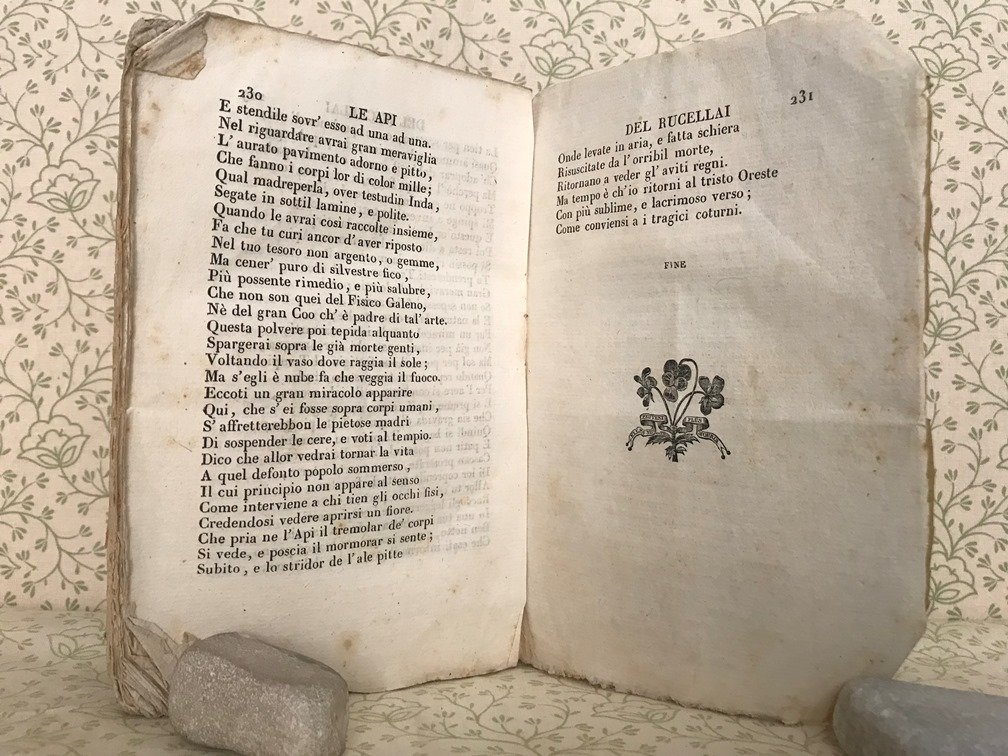 230
LE API
E stendile sovr' esso ad una ad una.
Nel riguardare avrai gran meraviglia
L' aurato pavimento adorno e pitto,
Che fanno i corpi lor di color mille;
Qual madreperla, over testudin Inda,
Segate in sottil lamine, e polite.
Quando le avrai così raccolte insieme,
Fa che tu curi ancor d' aver riposto
Nel tuo tesoro non argento, o gemme,
Ma cener' puro di silvestre fico,
Più possente rimedio, e più salubre,
Che non son quei del Fisico Galeno,
Nè del gran Coo ch' è padre di tal' arte.
Questa polvere poi tepida alquanto
Spargerai sopra le già morte genti,
Voltando il vaso dove raggia il sole;
Ma s'egli è nube fa che veggia il fuoco.
Eccoti un gran miracolo apparire
Qui, che s' ei fosse sopra corpi umani,
S' affretterebbon le pietose madri
Di sospender le cere, e voti al tempio.
Dico che allor vedrai tornar la vita
A quel defonto popolo sommerso,
Il cui principio non appare al senso
Come interviene a chi tien gli occhi fisi,
Credendosi vedere aprirsi un fiore.
Che pria ne l'Api il tremolar de' corpi
Si vede, e poscia il mormorar si sente;
Subito, e lo stridor de l'ale pitte
DEL RUCELLAI
231
Onde levate in aria, e fatta schiera
Risuscitate da l'orribil morte,
Ritornano a veder gl' aviti regni.
Ma tempo è ch'io ritorni al tristo Oreste
Con più sublime, e lacrimoso verso;
Come conviensi a i tragici coturni.
FINE